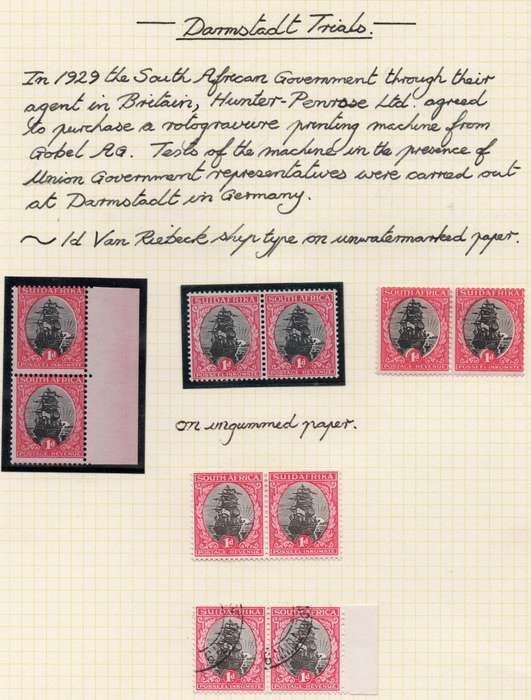 Darmstadt Trials.
In 1929 the South African Government through their
agent in Britain, Hunter-Penrose Ltd. agreed
to purchase a rotogravure printing machine from
Gobel A.G. Tests of the machine in the presence of
Union Government representatives were carried out
at Darmstadt in Germany.
~ 1d Van Riebeck ship type on unwatermarked paper.
SUIDAFRIKA
1d
POSSEEL-INKOMSTE
SOUTH AFRICA
1d
POSTAGE REVENUE
SUIDAFRIKA SOUTH AFRICA
1d 1d
POSSEEL-INKOMSTE POSTAGE REVENUE
SOUTH AFRICA SUIDAFRIKA
1d 1d
POSTAGE REVENUE POSSEEL-INKOMSTE
on ungummed paper.
SOUTH AFRICA SUIDAFRIKA
1d 1d
POSTAGE REVENUE POSSEEL-INKOMSTE
SUIDAFRIKA SOUTH AFRICA
1d 1d
POSSEEL-INKOMSTE POSTAGE REVENUE